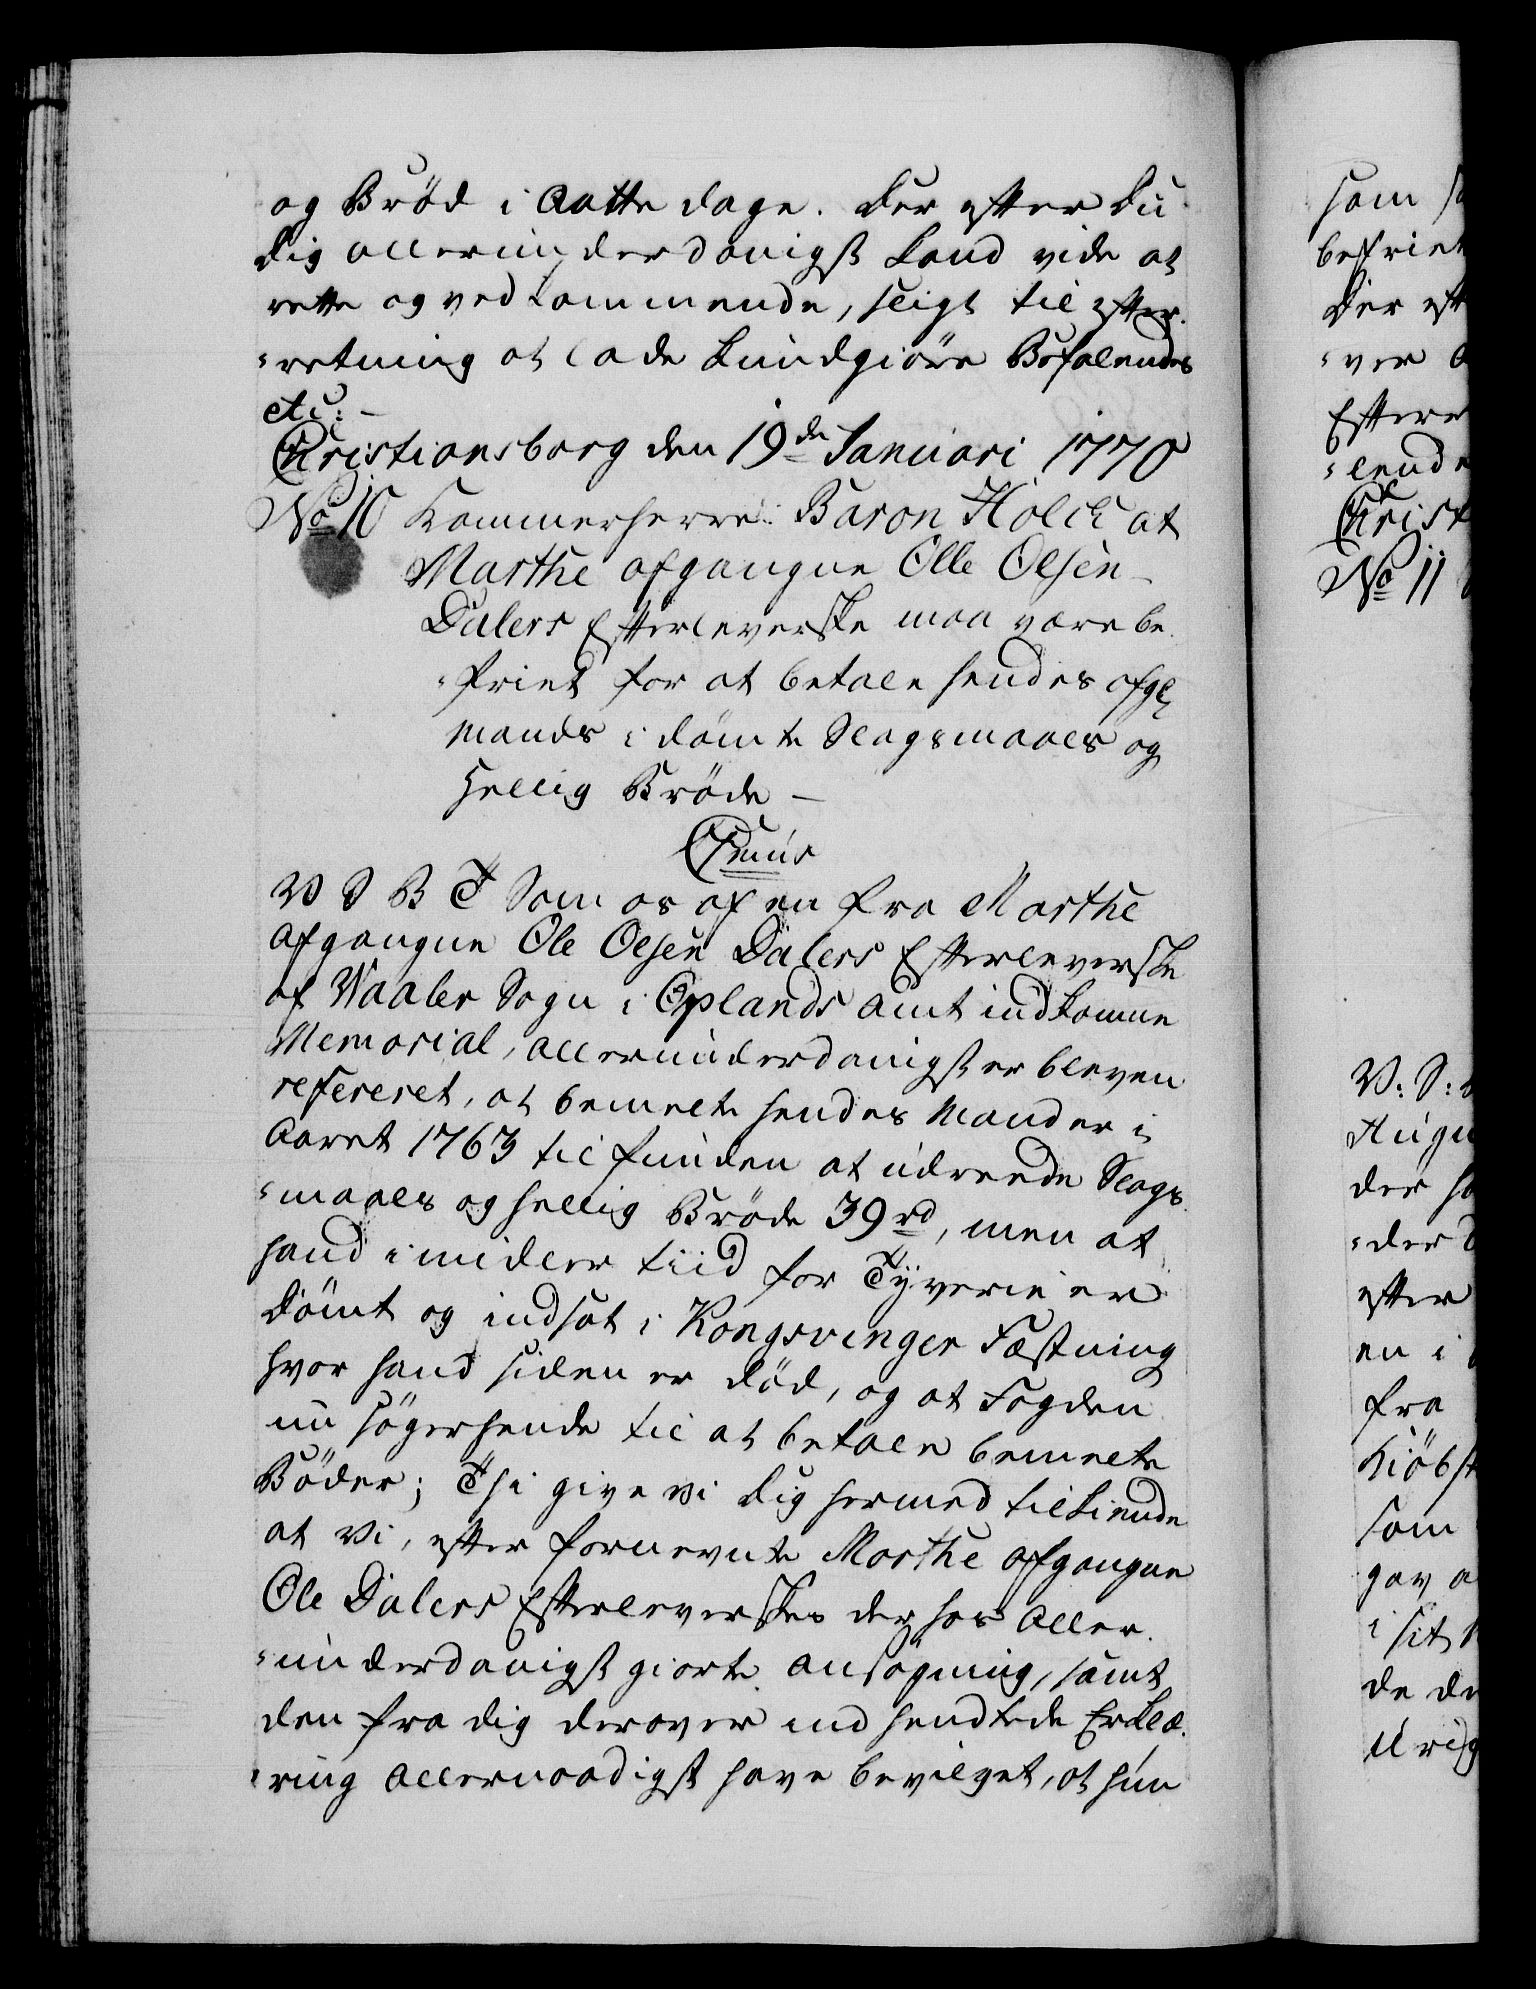 og Brød i Aatte dage. Der efter du
dig allerunderdanigst kand vide at
rette og vedkommende, sligt til efter-
=retning at lade kundgiøre Befalendes
etc: -
Christiansborg den 19de Januari 1770
No 10 Kammerherre: Baron Holck at
Marthe afgangne Olle Olsen
Dalers Efterleverske maa være be-
=friet for at betale hendes afge
Mands idömte Slagsmaals og
Hellig Bröde -
Cſmus
V S B T Som os af en fra Marthe
afgangne Ole Olsen Dalers Efterleverske
af Waaler Sogn i Oplands Amt indkomne
Memorial, allerunderdanigst er bleven
refereret, at bemelte hendes Mand er i
Aaret 1763 tilfunden at udreede Slags
=maals og hellig Bröde 39 rd, men at
hand imidler tiid for Tyverie er
dömt og indsat i Kongsvinger Fæstning
hvor hand siden er död, og at Fogden
nu söger hende til at betale bemelte
Böder; Thi give vi dig hermed tilkiende
at Vi, efter fornevnte Marthe afgangne
Ole Dalers Efterleverskes derhos Aller-
=underdanigst giorte ansögning, samt
den fra dig derover indsendtede Erklæ-
=ring Allernaadigst have bevilget, at hun
som
befriet
Der eft
=ver
Efterr
=lende
Christ
No 11
V: S:
Augu
der ha
=der
efter
en i
fra
Kiöbst
som
gav a
i sit
de de